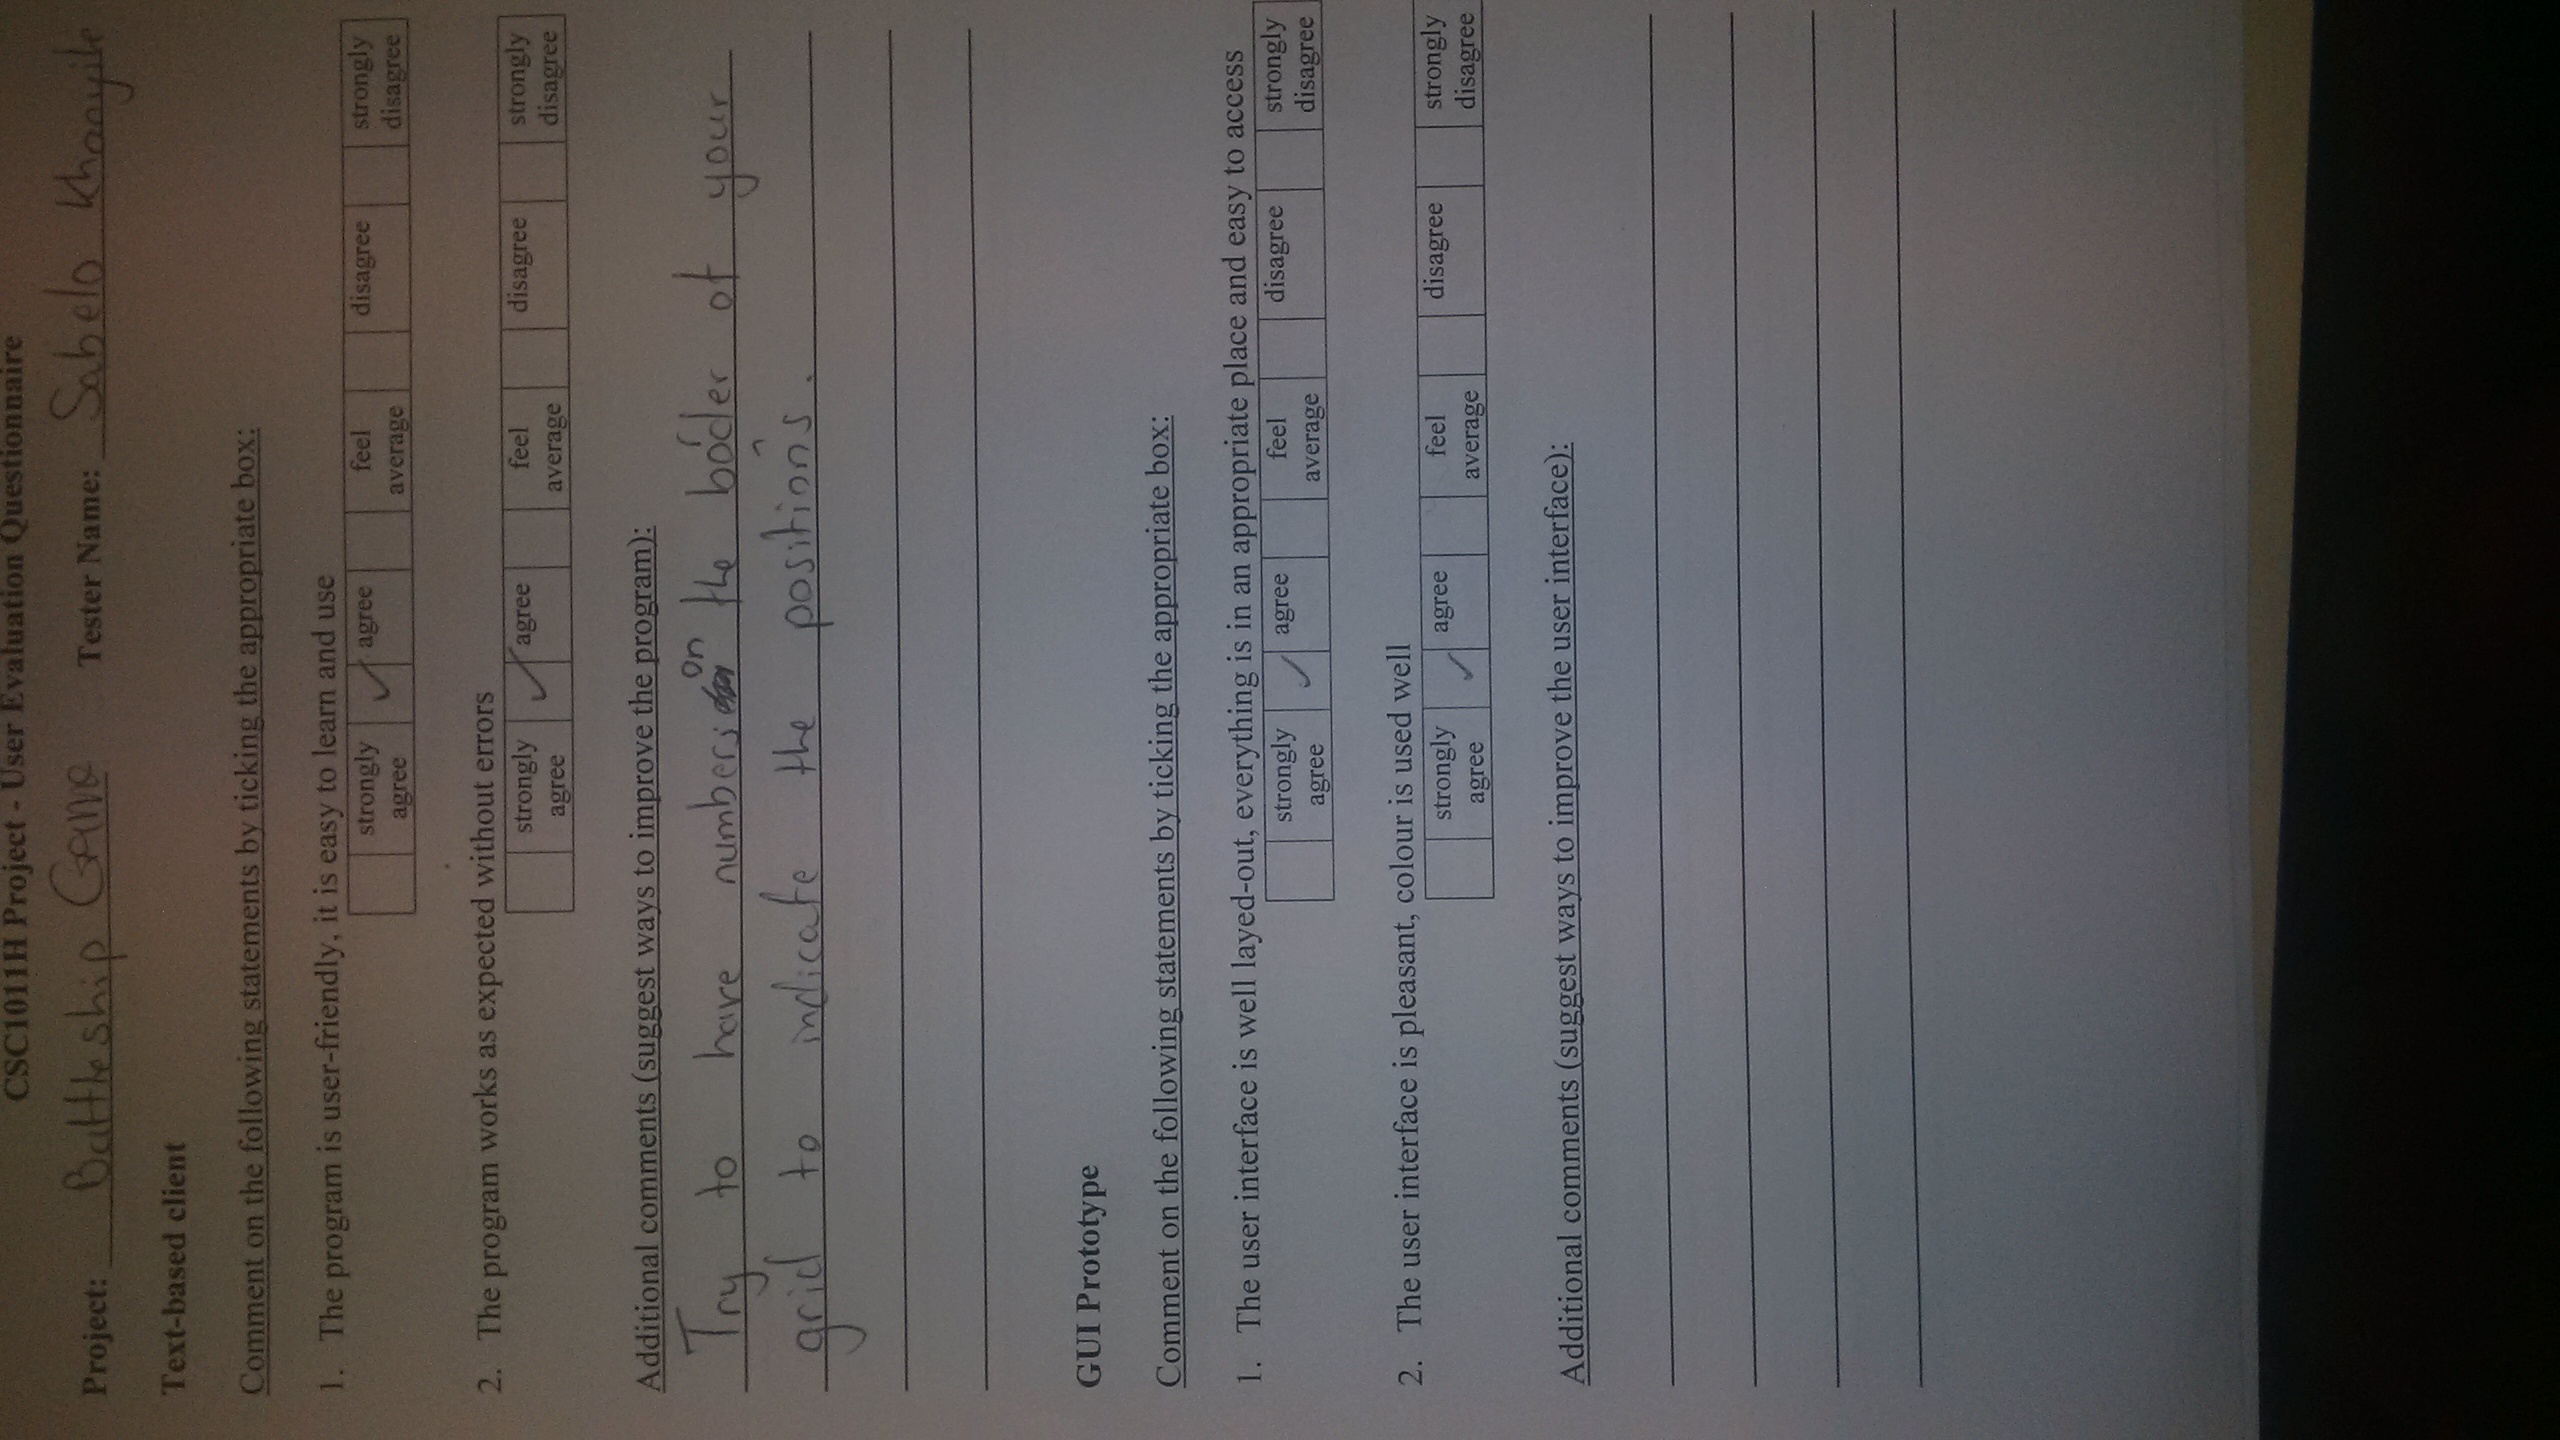 CSC1011H Project - User Evaluation Questionnaire
Project: Battleship Game Tester Name: Sabelo Khanyile
Text-based client
Comment on the following statements by ticking the appropriate box:
1. The program is user-friendly, it is easy to learn and use
strongly agree ✓ agree feel average disagree strongly disagree
2. The program works as expected without errors
strongly agree ✓ agree feel average disagree strongly disagree
Additional comments (suggest ways to improve the program):
Try to have numbers on the border of your
grid to indicate the positions.
GUI Prototype
Comment on the following statements by ticking the appropriate box:
1. The user interface is well layed-out, everything is in an appropriate place and easy to access
strongly agree ✓ agree feel average disagree strongly disagree
2. The user interface is pleasant, colour is used well
strongly agree ✓ agree feel average disagree strongly disagree
Additional comments (suggest ways to improve the user interface):